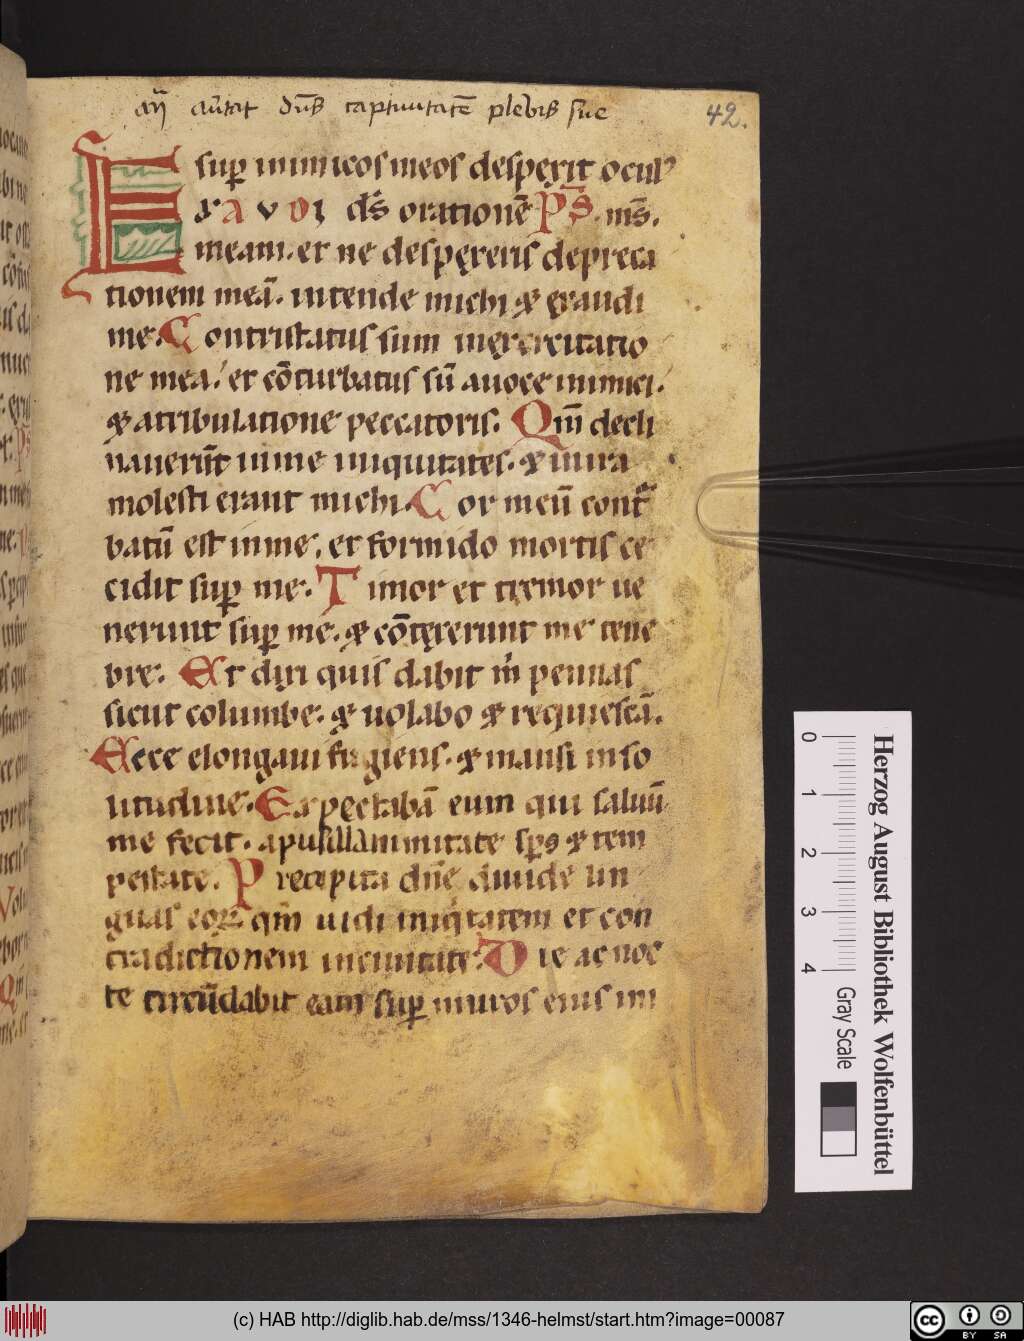 an̄ aūtat dn̄s captiuitatē plebis sue
42.
sup inimicos meos despexit ocul'
EXAVDI ds̄ orationē Ps̄. ms̄.
meam. et ne despexeris depreca
tionem meā. intende michi & exaudi
me. Contristatus sum inexercitatio
ne mea. et cōturbatus sū auoce inimici.
& atribulatione peccatoris. Qm̄ decli
nauerūt inme iniquitates. & inira
molesti erant michi. Cor meū cont̄
batū est inme, et formido mortis ce
cidit sup me. Timor et tremor ue
nerunt sup me. & cōtexerunt me tene
bre. Et dixi quis dabit m̄ pennas
sicut columbe. & uolabo & requiescā.
Ecce elongaui fugiens. & mansi inso
litudine. Expectabā eum qui saluū
me fecit. apusillanimitate sps & tem
pestate. Precipita dn̄e diuide lin
guas eoꝝ qm̄ uidi iniqtatem et con
tradictionem inciuitate. Die ac noc
te circūdabit eam sup muros eius ini
Herzog August Bibliothek Wolfenbüttel
0 1 2 3 4
Gray Scale
(c) HAB http://diglib.hab.de/mss/1346-helmst/start.htm?image=00087
cc BY SA